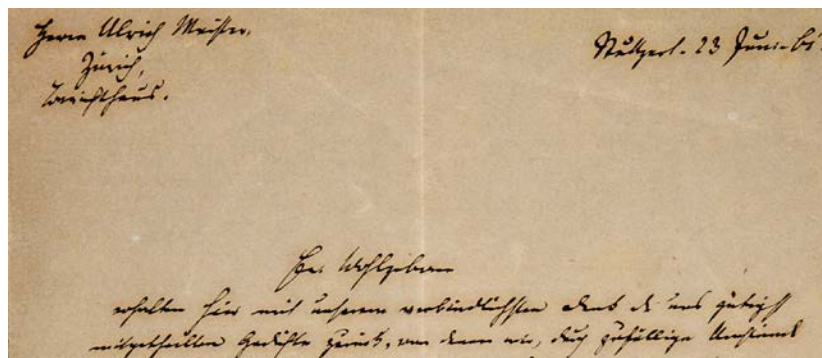 Herrn Ulrich Meister,
Stuttgart. 23 Juni
Zürich,
Ew. Wohlgeboren
erhalten hier mit unserem verbindlichsten Dank die uns gütigst
mitgetheilten Gedichte zurück, von denen wir, durch zufällige Umstände